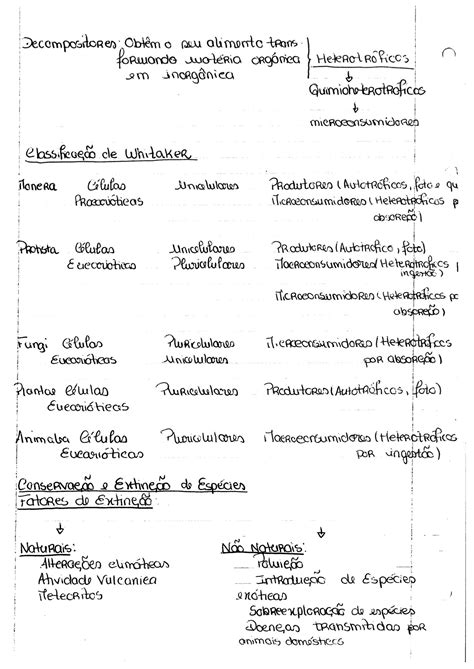 Decompositores: Obtêm o seu alimento trans-
formando matéria orgânica } Heterotróficos
em inorgânica
↓
Quimioheterotróficos
↓
microconsumidores
Classificação de Whitaker
Monera Células Unicelulares Produtores (Autotróficos, foto e qu
Procarióticas Microconsumidores (Heterotróficos p
absorção)
Protista Células Unicelulares Produtores (Autotrófico, foto)
Eucarióticas Pluricelulares Macroconsumidores (Heterotróficos
ingestão)
Microconsumidores (Heterotróficos po
absorção)
Fungi Células Pluricelulares Microconsumidores (Heterotróficos
Eucarióticas Unicelulares por absorção)
Plantae Células Pluricelulares Produtores (Autotróficos, foto)
Eucarióticas
Animalia Células Pluricelulares Macroconsumidores (Heterotróficos
Eucarióticas por ingestão)
Conservação e Extinção de Espécies
Fatores de Extinção:
↓ ↓
Naturais: Não Naturais:
Alterações climáticas Poluição
Atividade Vulcanica Introdução de Espécies
Meteoritos exóticas
Sobreexploração de espécies
Doenças transmitidas por
animais domésticos